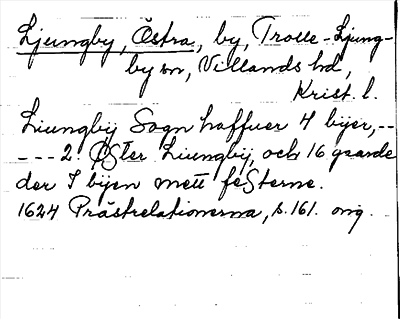 Ljungby, Östra, by, Trolle-Ljung-
by sn, Villands hd,
Krist. l.
Liungbÿ Sogn haffuer 4 bÿer, --
--- 2. ØSter Liungbÿ, och 16 gaarde
der I bÿen mett feSterne.
1624 Prästrelationerna, s. 161. orig.